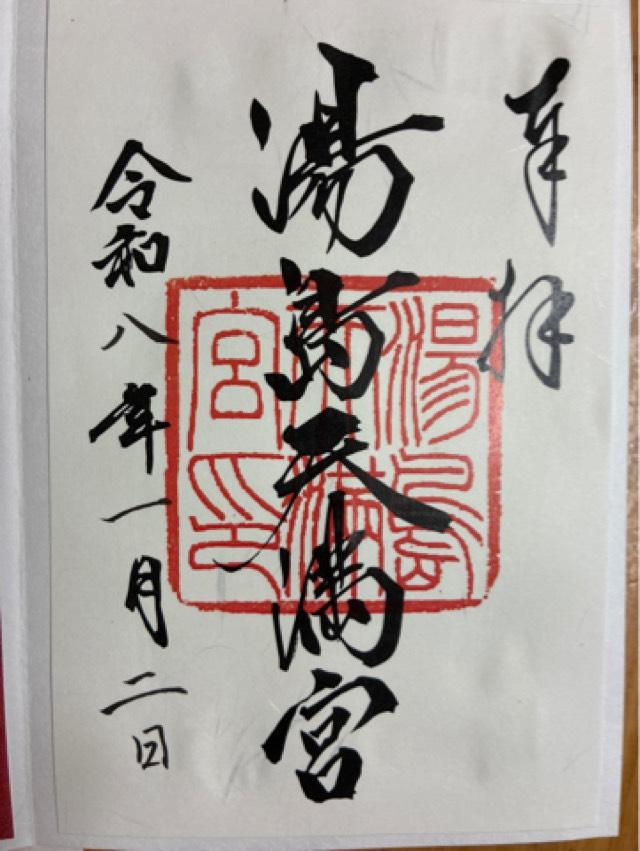 奉拝
湯島天満宮
湯島
天満
宮印
令和八年一月二日